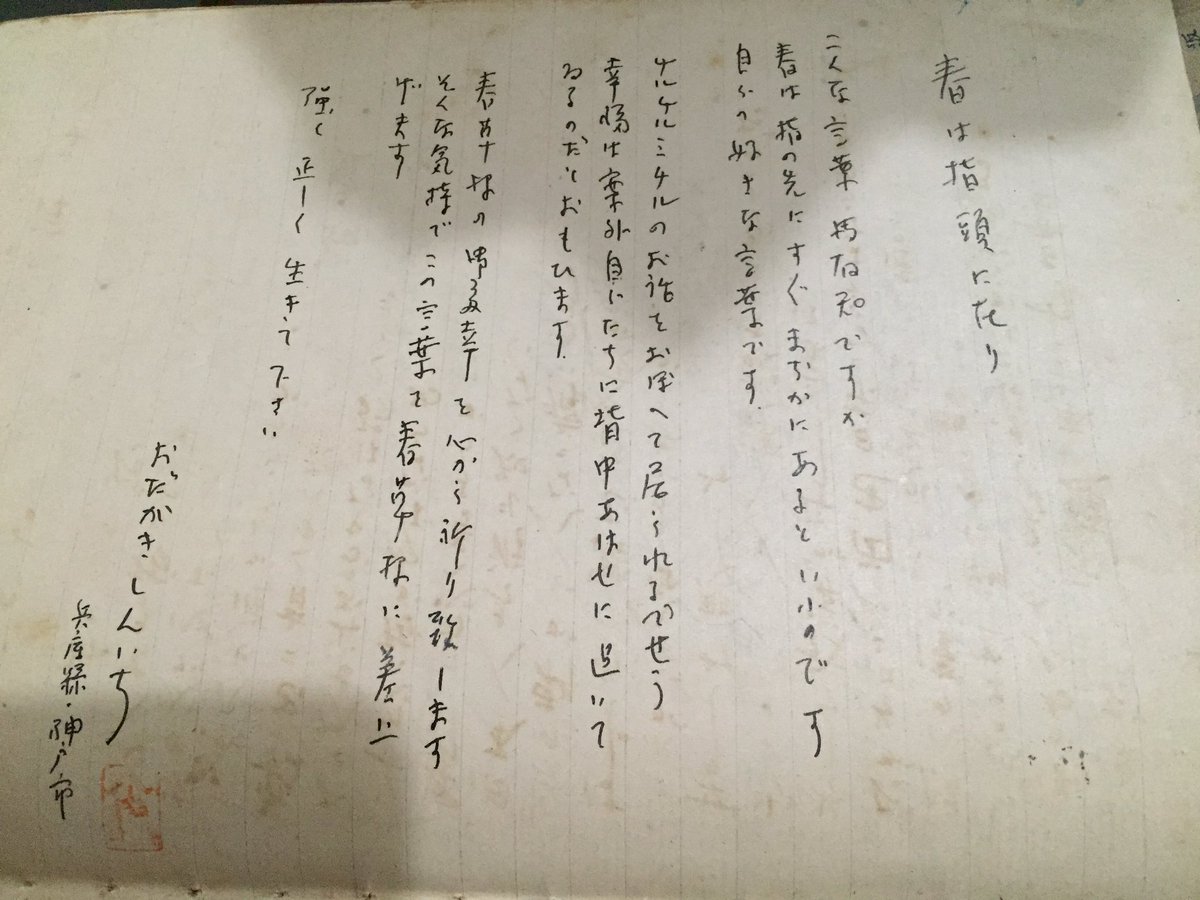 春は指頭に在り
こんな言葉 御存知ですか
春は指の先にすぐまぢかにあるといふのです
自分の好きな言葉です.
チルチルミチルのお話をおぼへて居られるでせう
幸福は案外自分たちに背中あはせに 退いて
ゐるのだとおもひます.
春 様の 幸を心から祈り致します
そんな気持でこの言葉を春 様に、差上
げます
強く 正しく 生きて下さい
おだがきしんいち
兵庫縣・神戸市